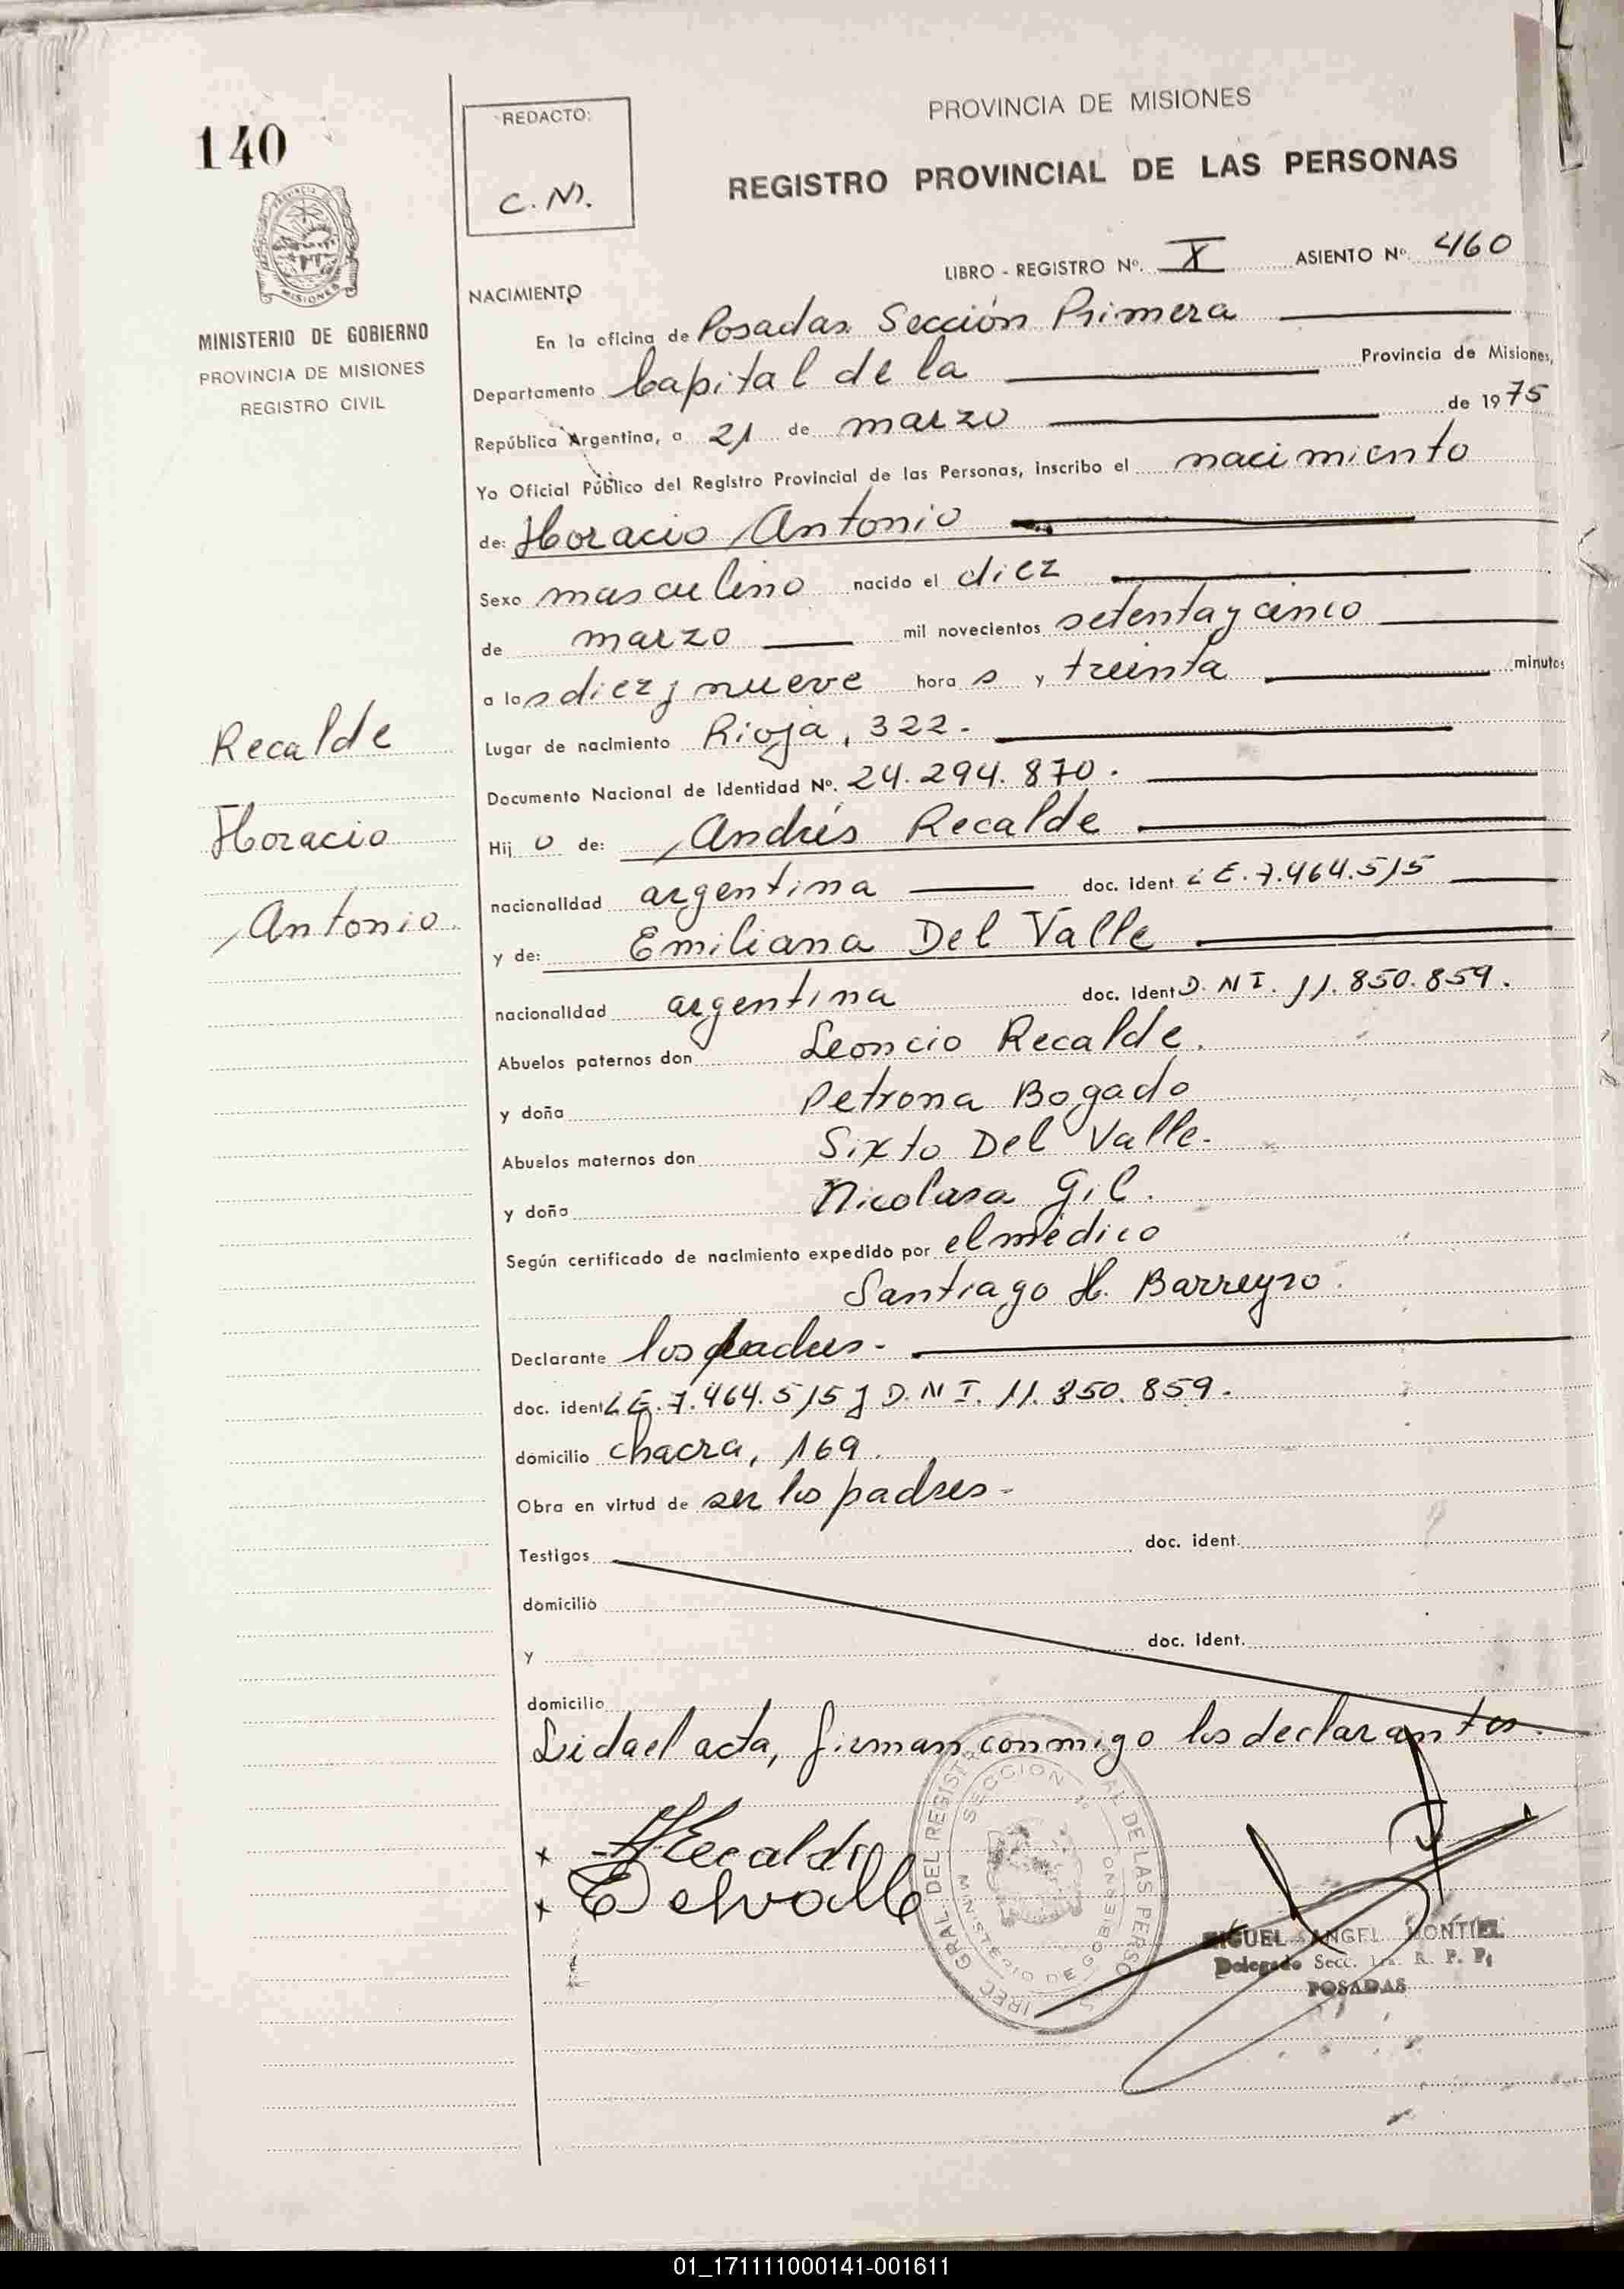 140
REDACTO:
C. M.
PROVINCIA DE MISIONES
REGISTRO PROVINCIAL DE LAS PERSONAS
LIBRO - REGISTRO Nº. X ASIENTO Nº. 460
MINISTERIO DE GOBIERNO
PROVINCIA DE MISIONES
REGISTRO CIVIL
NACIMIENTO
En la oficina de Posadas Sección Primera
Departamento Capital de la Provincia de Misiones,
República Argentina, a 21 de marzo de 1975
Yo Oficial Público del Registro Provincial de las Personas, inscribo el nacimiento
de: Horacio Antonio
Sexo masculino nacido el diez
de marzo mil novecientos setenta y cinco
a las diez y nueve horas y treinta minutos
Recalde
Horacio
Antonio
Lugar de nacimiento Rioja, 322.
Documento Nacional de Identidad Nº. 24.294.870.
Hijo de: Andrés Recalde
nacionalidad argentina doc. ident. L E. 7.464.515
y de: Emiliana Del Valle
nacionalidad argentina doc. ident D. N I. 11.850.859.
Abuelos paternos don Leoncio Recalde.
y doña Petrona Bogado
Abuelos maternos don Sixto Del Valle.
y doña Nicolasa Gil.
Según certificado de nacimiento expedido por el médico
Santiago H. Barreyro.
Declarante los padres.
doc. ident L E. 7.464.515 y D. N I. 11.850.859.
domicilio chacra, 169.
Obra en virtud de ser los padres.
Testigos doc. ident.
domicilio
y doc. ident.
domicilio
Leida el acta, firman conmigo los declarantes.
x ARecalde
x E Delvalle
SECCION 1ª
MINISTERIO DE GOBIERNO
MIGUEL ANGEL MONTIEL
Delegado Secc. 1ra. R. P. P.
POSADAS
01_171111000141-001611